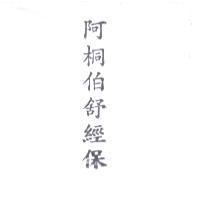 阿桐伯舒經保